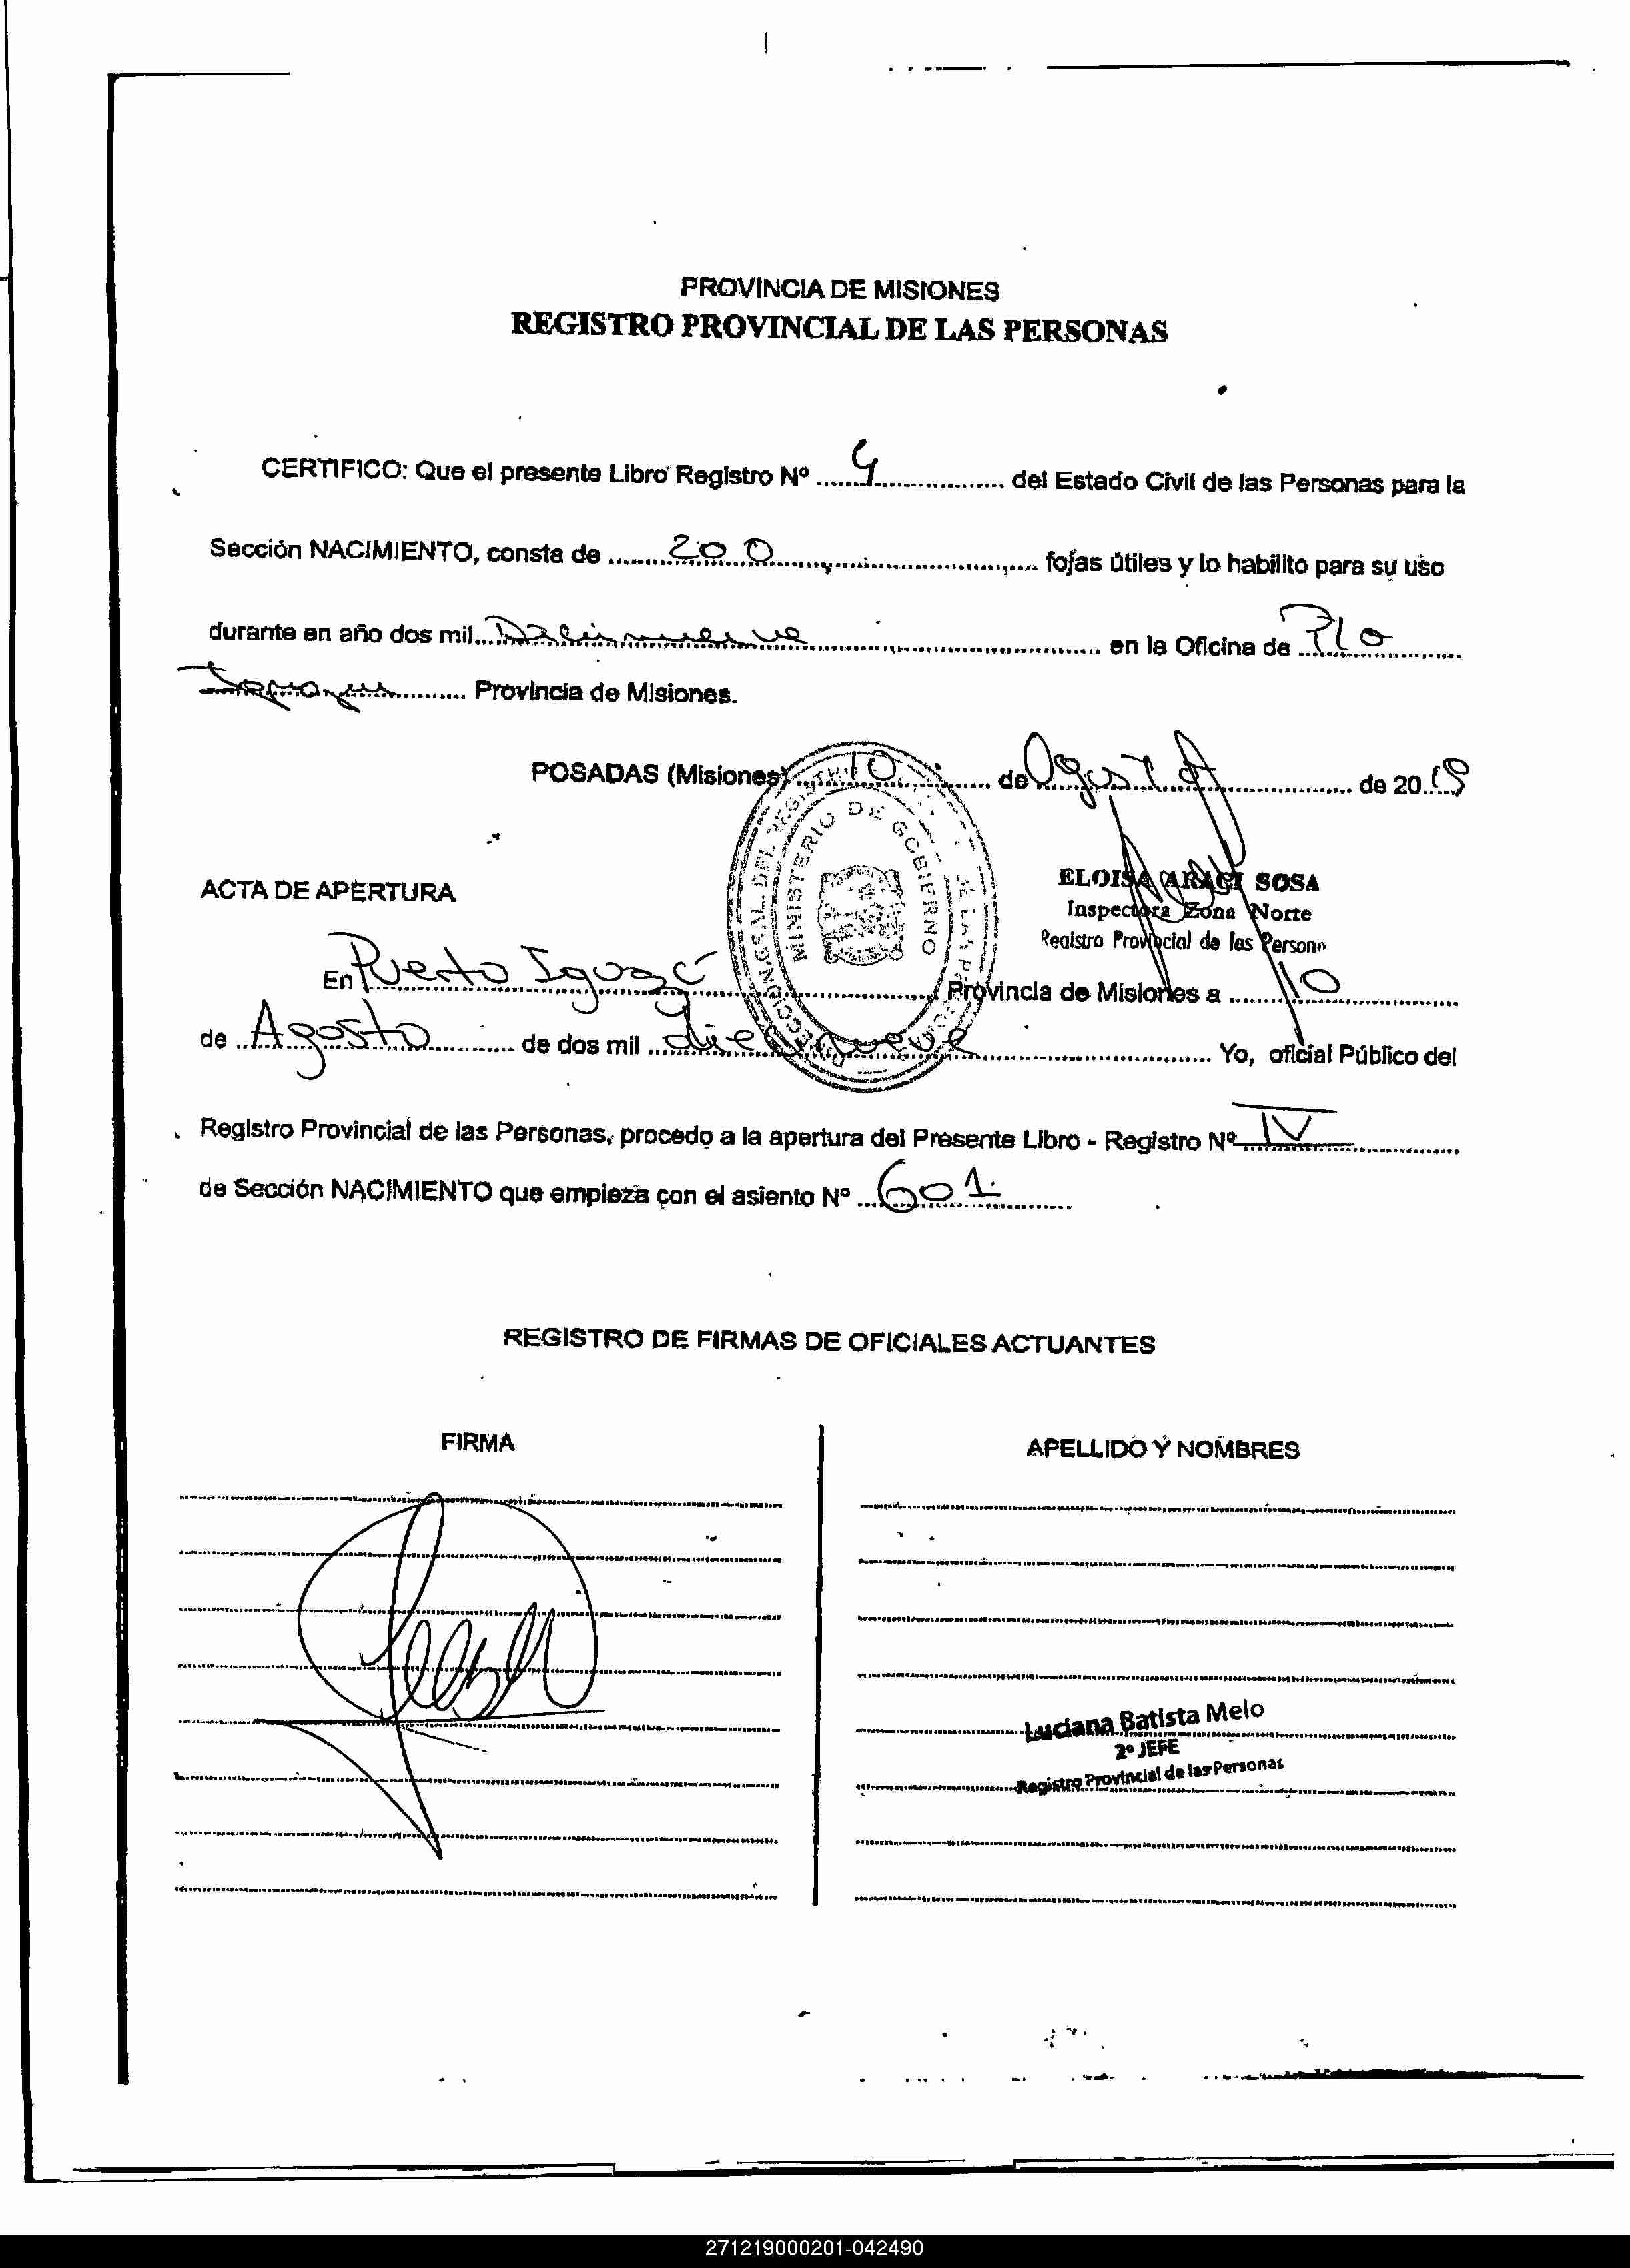 PROVINCIA DE MISIONES
REGISTRO PROVINCIAL DE LAS PERSONAS
CERTIFICO: Que el presente Libro Registro Nº 4 del Estado Civil de las Personas para la
Sección NACIMIENTO, consta de 200 fojas útiles y lo habilito para su uso
durante en año dos mil Diecinueve en la Oficina de Pto
Provincia de Misiones.
POSADAS (Misiones) 10 de Agosto de 2019
MINISTERIO DE GOBIERNO
ELOISA ARACI SOSA
Inspectora Zona Norte
Registro Provincial de las Person
ACTA DE APERTURA
En Puerto Iguazú Provincia de Misiones a 10
de Agosto de dos mil diecinueve Yo, oficial Público del
Registro Provincial de las Personas, procedo a la apertura del Presente Libro - Registro Nº IV
de Sección NACIMIENTO que empieza con el asiento Nº 601
REGISTRO DE FIRMAS DE OFICIALES ACTUANTES
FIRMA
APELLIDO Y NOMBRES
Luciana Batista Melo
2º JEFE
Registro Provincial de las Personas
271219000201-042490